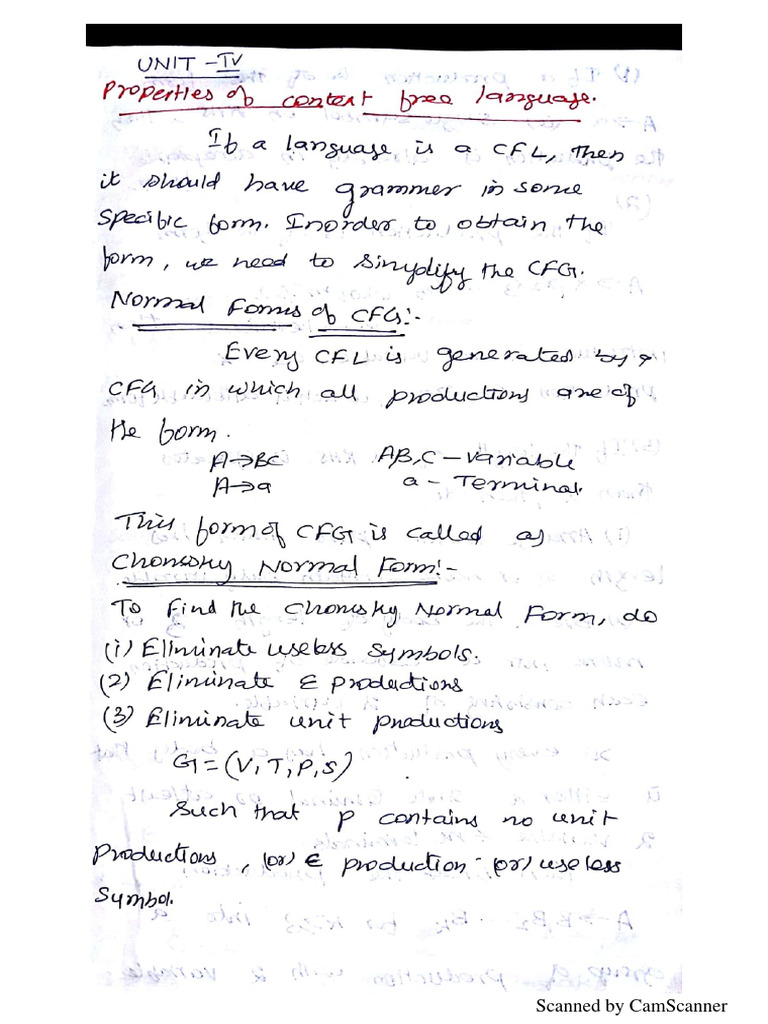 UNIT - IV
Properties of context free language.
If a language is a CFL, then
it should have grammer in some
specific form. Inorder to obtain the
form, we need to simplify the CFG.
Normal Forms of CFG:-
Every CFL is generated by a
CFG in which all productions are of
the form.
A→BC A,B,C - Variable
A→a a - Terminal.
This form of CFG is called as
Chomsky Normal Form:-
To find the Chomsky Normal Form, do
(i) Eliminate useless symbols.
(2) Eliminate ε productions
(3) Eliminate unit productions
G1 = (V, T, P, S)
Such that P contains no unit
productions, (or) ε production (or) useless
Symbol.
Scanned by CamScanner